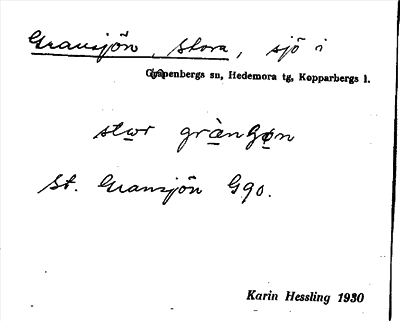 Gransjön, Stora, sjö i
Garpenbergs sn, Hedemora tg, Kopparbergs l.
stωr grànʃøn
St. Gransjön G90.
Karin Hessling 1930